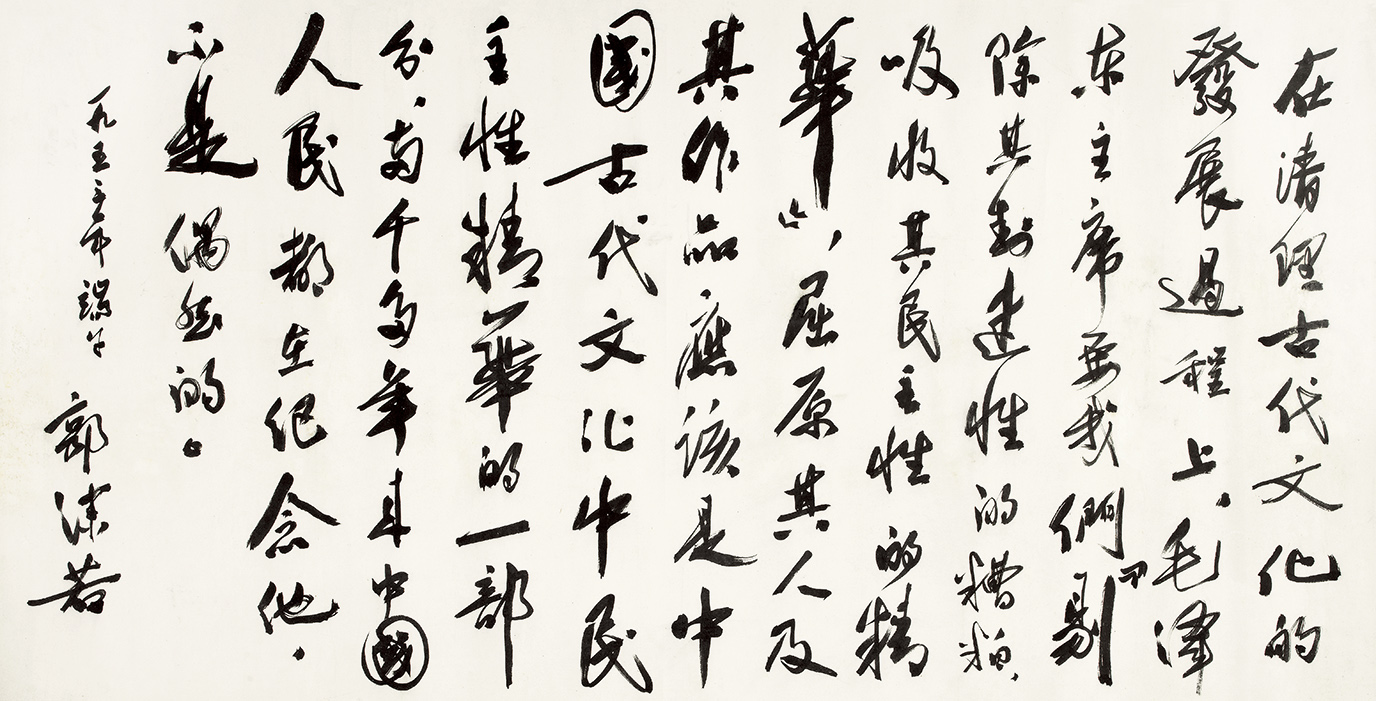 在清理古代文化的
發展過程上，毛澤
東主席要我們“剔
除其封建性的糟粕，
吸收其民主性的精
華”，屈原其人及
其作品應該是中
國古代文化中民
主性精華的一部
分，兩千多年來中國
人民都在紀念他，
不是偶然的。
一九五三年端午 郭沫若